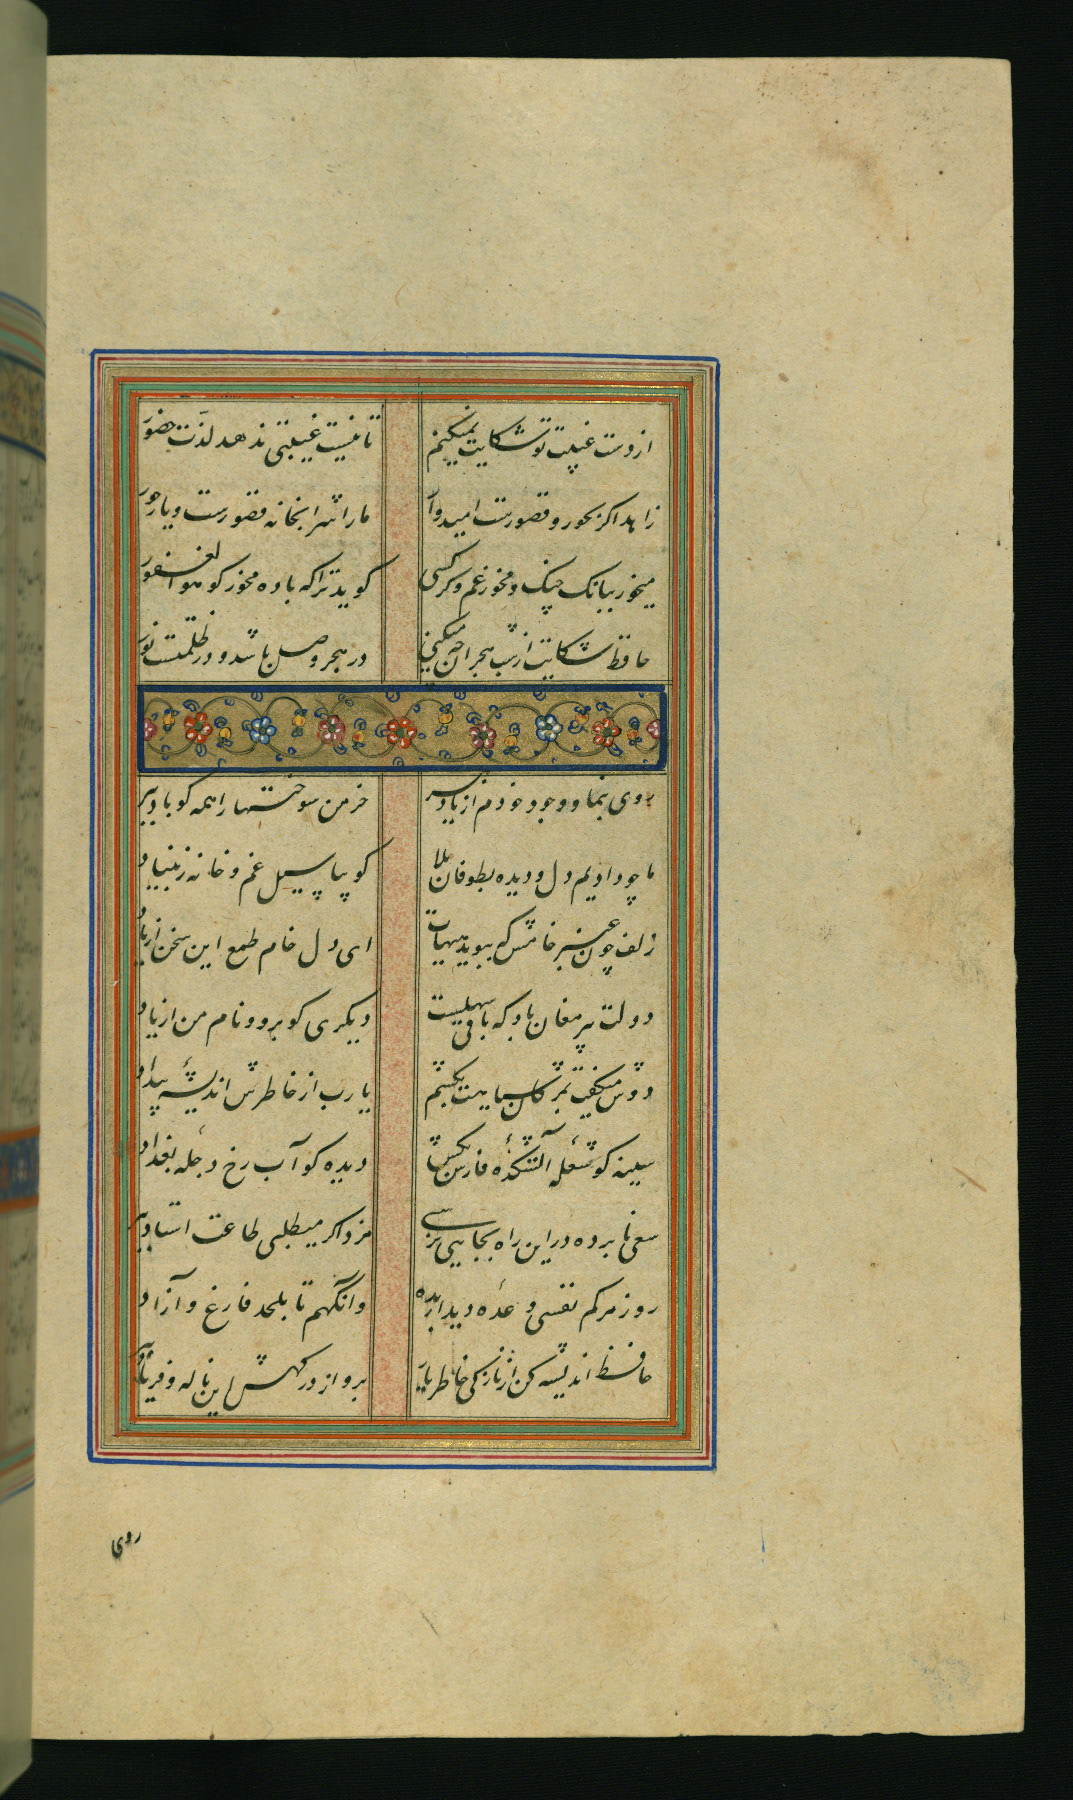 از دست غیبت تو شکایت نمیکنم تا نیست غیبتی ندهد لذّت حضور
زاهد اگر بحور و قصورست امیدوار ما را شرابخانه قصورست و یار حور
میخور ببانک چنک و مخور غم و کر کسی کوید ترا که باده مخور کو هو الغفور
حافظ شکایت از شب هجران چه میکنی در هجر وصل باشد و در ظلمتست نور
روی بنما و وجود خودم از یاد ببر خرمن سوختها را همه کو باد ببر
ما چو دادیم دل و دیده بطوفان بلا کو بیا سیل غم و خانه ز بنیاد
زلف چون عنبر خامش که ببوید هیهات ای دل خام طمع این سخن از یاد
دولت پیر مغان باد که باقی سهلیست دیکری کو برو و نام من از یاد
دوش میکفت بمژکان سیاهت بکشم یارب از خاطرش اندیشه بیداد
سینه کو شعله آتشکده فارس بکش دیده کو آب رخ دجله بغداد
سعی نابرده در این راه بجایی نرسی مزد اکر میطلبی طاعت استاد ببر
روز مرکم نفسی وعده دیدار بده وانکهم تا بلحد فارغ و آزاد
حافظ اندیشه کن از نازکی خاطر یار برو از درکهش این ناله و فریاد
روی